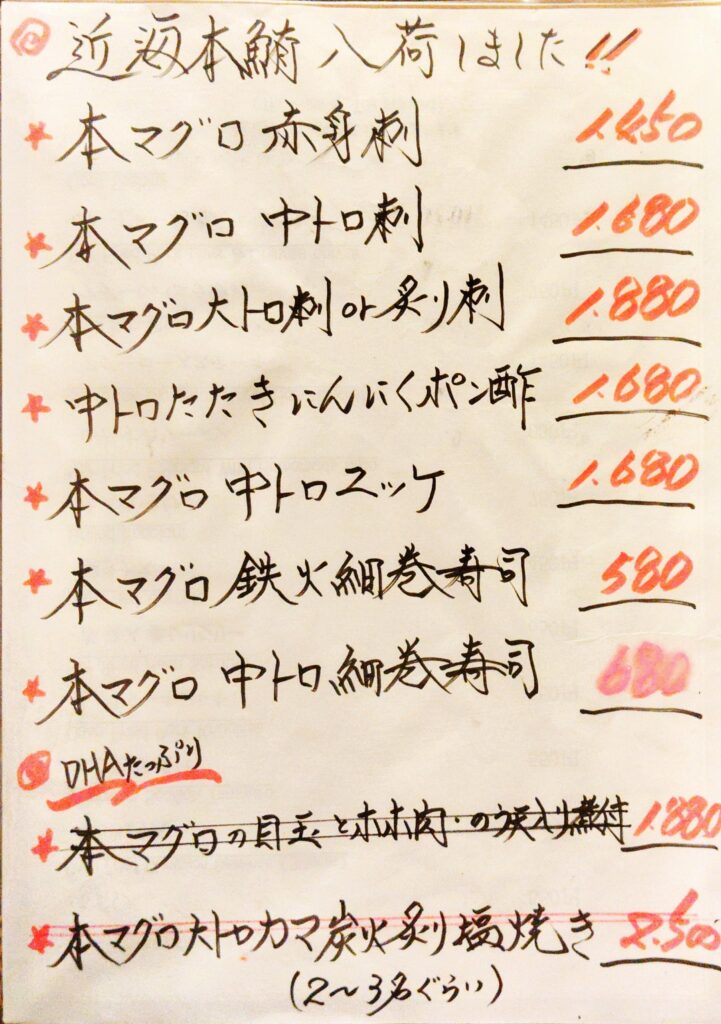 近海本鮪入荷しました!!
★ 本マグロ 赤身刺 1.450
★ 本マグロ 中トロ刺 1.680
★ 本マグロ大トロ刺 or 炙り刺 1.880
★ 中トロたたきにんにくポン酢 1.680
★ 本マグロ 中トロユッケ 1.680
★ 本マグロ 鉄火細巻寿司 580
★ 本マグロ 中トロ細巻寿司 680
DHAたっぷり
★ 本マグロの目玉とホホ肉の 煮付 1.880
★ 本マグロ大トロカマ炭火炙り塩焼き 2.500
(2〜3名ぐらい)